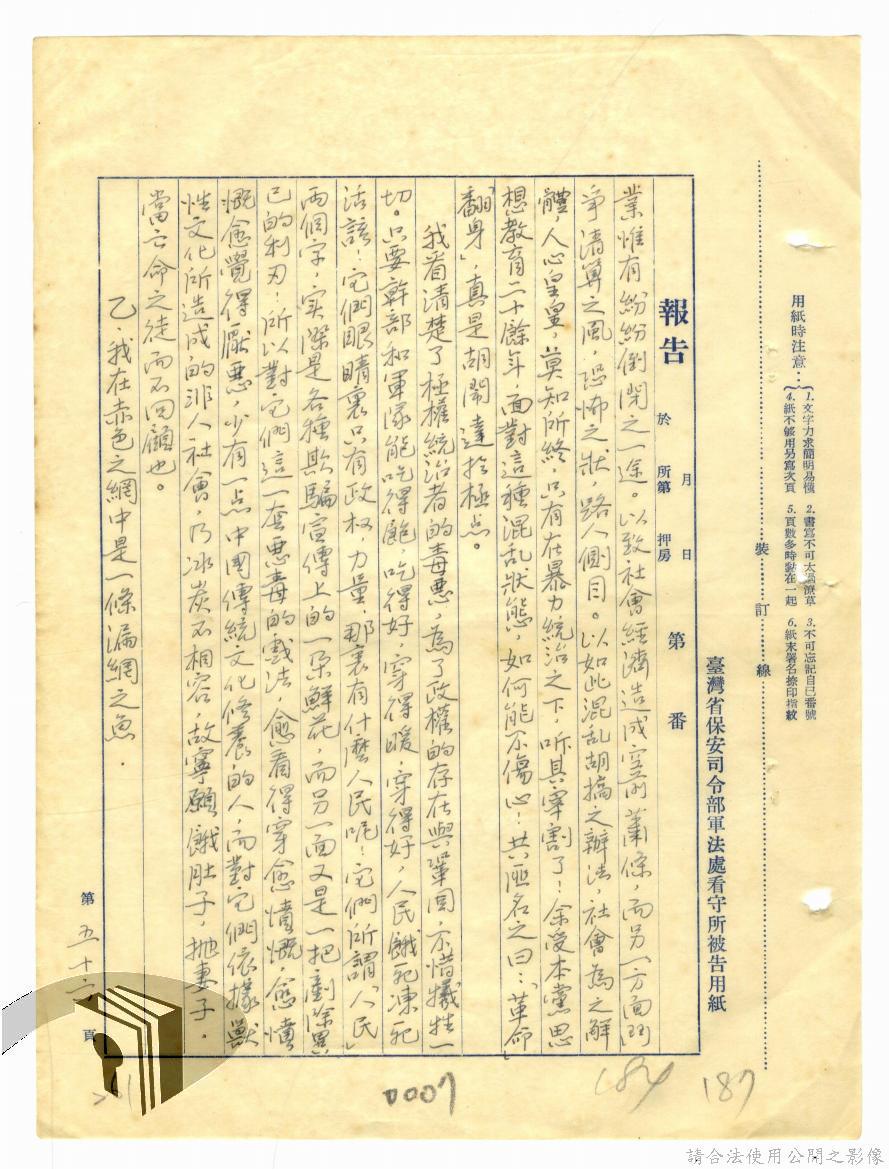 臺灣省保安司令部軍法處看守所被告用紙
用紙時注意：
1.文字力求簡明易懂 2.書寫不可太過潦草 3.不可忘記自己番號
4.紙不够用另寫次頁 5.頁數多時黏在一起 6.紙末署名捺印指紋
裝 訂 線
報告 於 月 日 所第 押房 第 番
業惟有紛紛倒閉之一途。以致社會經濟造成空前蕭條，而另一方面鬥
爭清算之風，恐怖之狀，路人側目。以如此混乱胡搞之辦法，社會為之解
體，人心皇皇，莫知所終，只有在暴力統治之下，听其宰割了！余受本黨思
想教育二十餘年，面對這種混乱狀態，如何能不傷心！共匪名之曰：「革命」
「翻身」，真是胡鬧達於極点。
我看清楚了極權統治者的毒惡，為了政權的存在與鞏固，不惜犧牲一
切。只要幹部和軍隊能吃得飽，吃得好，穿得暖，穿得好，人民餓死凍死
活該！它們眼睛裏只有政权，力量，那裏有什麼人民呢！它們所謂「人民」
兩個字，实際是各種欺騙宣傳上的一朵鮮花，而另一面又是一把剷除異
己的利刃！所以對它們這一套惡毒的戲法，愈看得穿愈憤慨，愈憤
慨愈覺得厭惡，少有一点中國傳統文化修養的人，而對它們依據獸
性文化所造成的非人社會，乃冰炭不相容，故寧願餓肚子，拋妻子，
當亡命之徒而不回顧也。
乙．我在赤色之網中是一條漏網之魚．
第 五十 頁
0007
184
187
請合法使用公開之影像